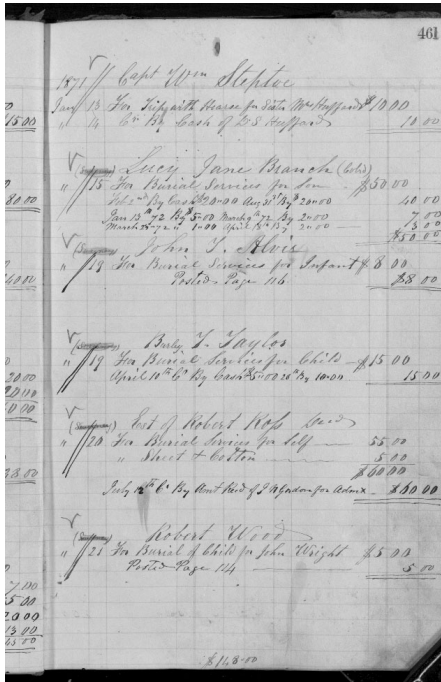 461
1871 Capt Wm Steptoe
Jany 13 For Trip with Hearse for Mr Hufford $10 00
" 14 Cr By Cash of D S Hufford 10.00
Lucy Jane Branch (Cold)
" 15 For Burial Services for Son $50.00
By Cash 20.00 Aug 31st By $ 20.00 40 00
Jan 13th 72 By $5.00 March 9th 72 By 2.00 7 00
March 25th 72 " 1.00 April 13th By 2.00 3 00
$50.00
John T. Alvis
" 18 For Burial Services for Infant $8 00
Posted Page 116 $8.00
Taylor
" 19 For Burial Services for Child $15 00
April 10th Cr By Cash $5.00 26th By 10.00 15 00
Est of Robert Ross Decd
" 20 For Burial Services for Self 55.00
" Sheet & Cotton 5.00
$60.00
July 12th Cr By Amt Recd of for Admix $60.00
Robert Wood
" 21 For Burial of Child for John Wright $5 00
Posted Page 114 5.00
$148.00
15 00
80.00
20 00
38.00
7.00
5 00
20 00
13 00
45 00